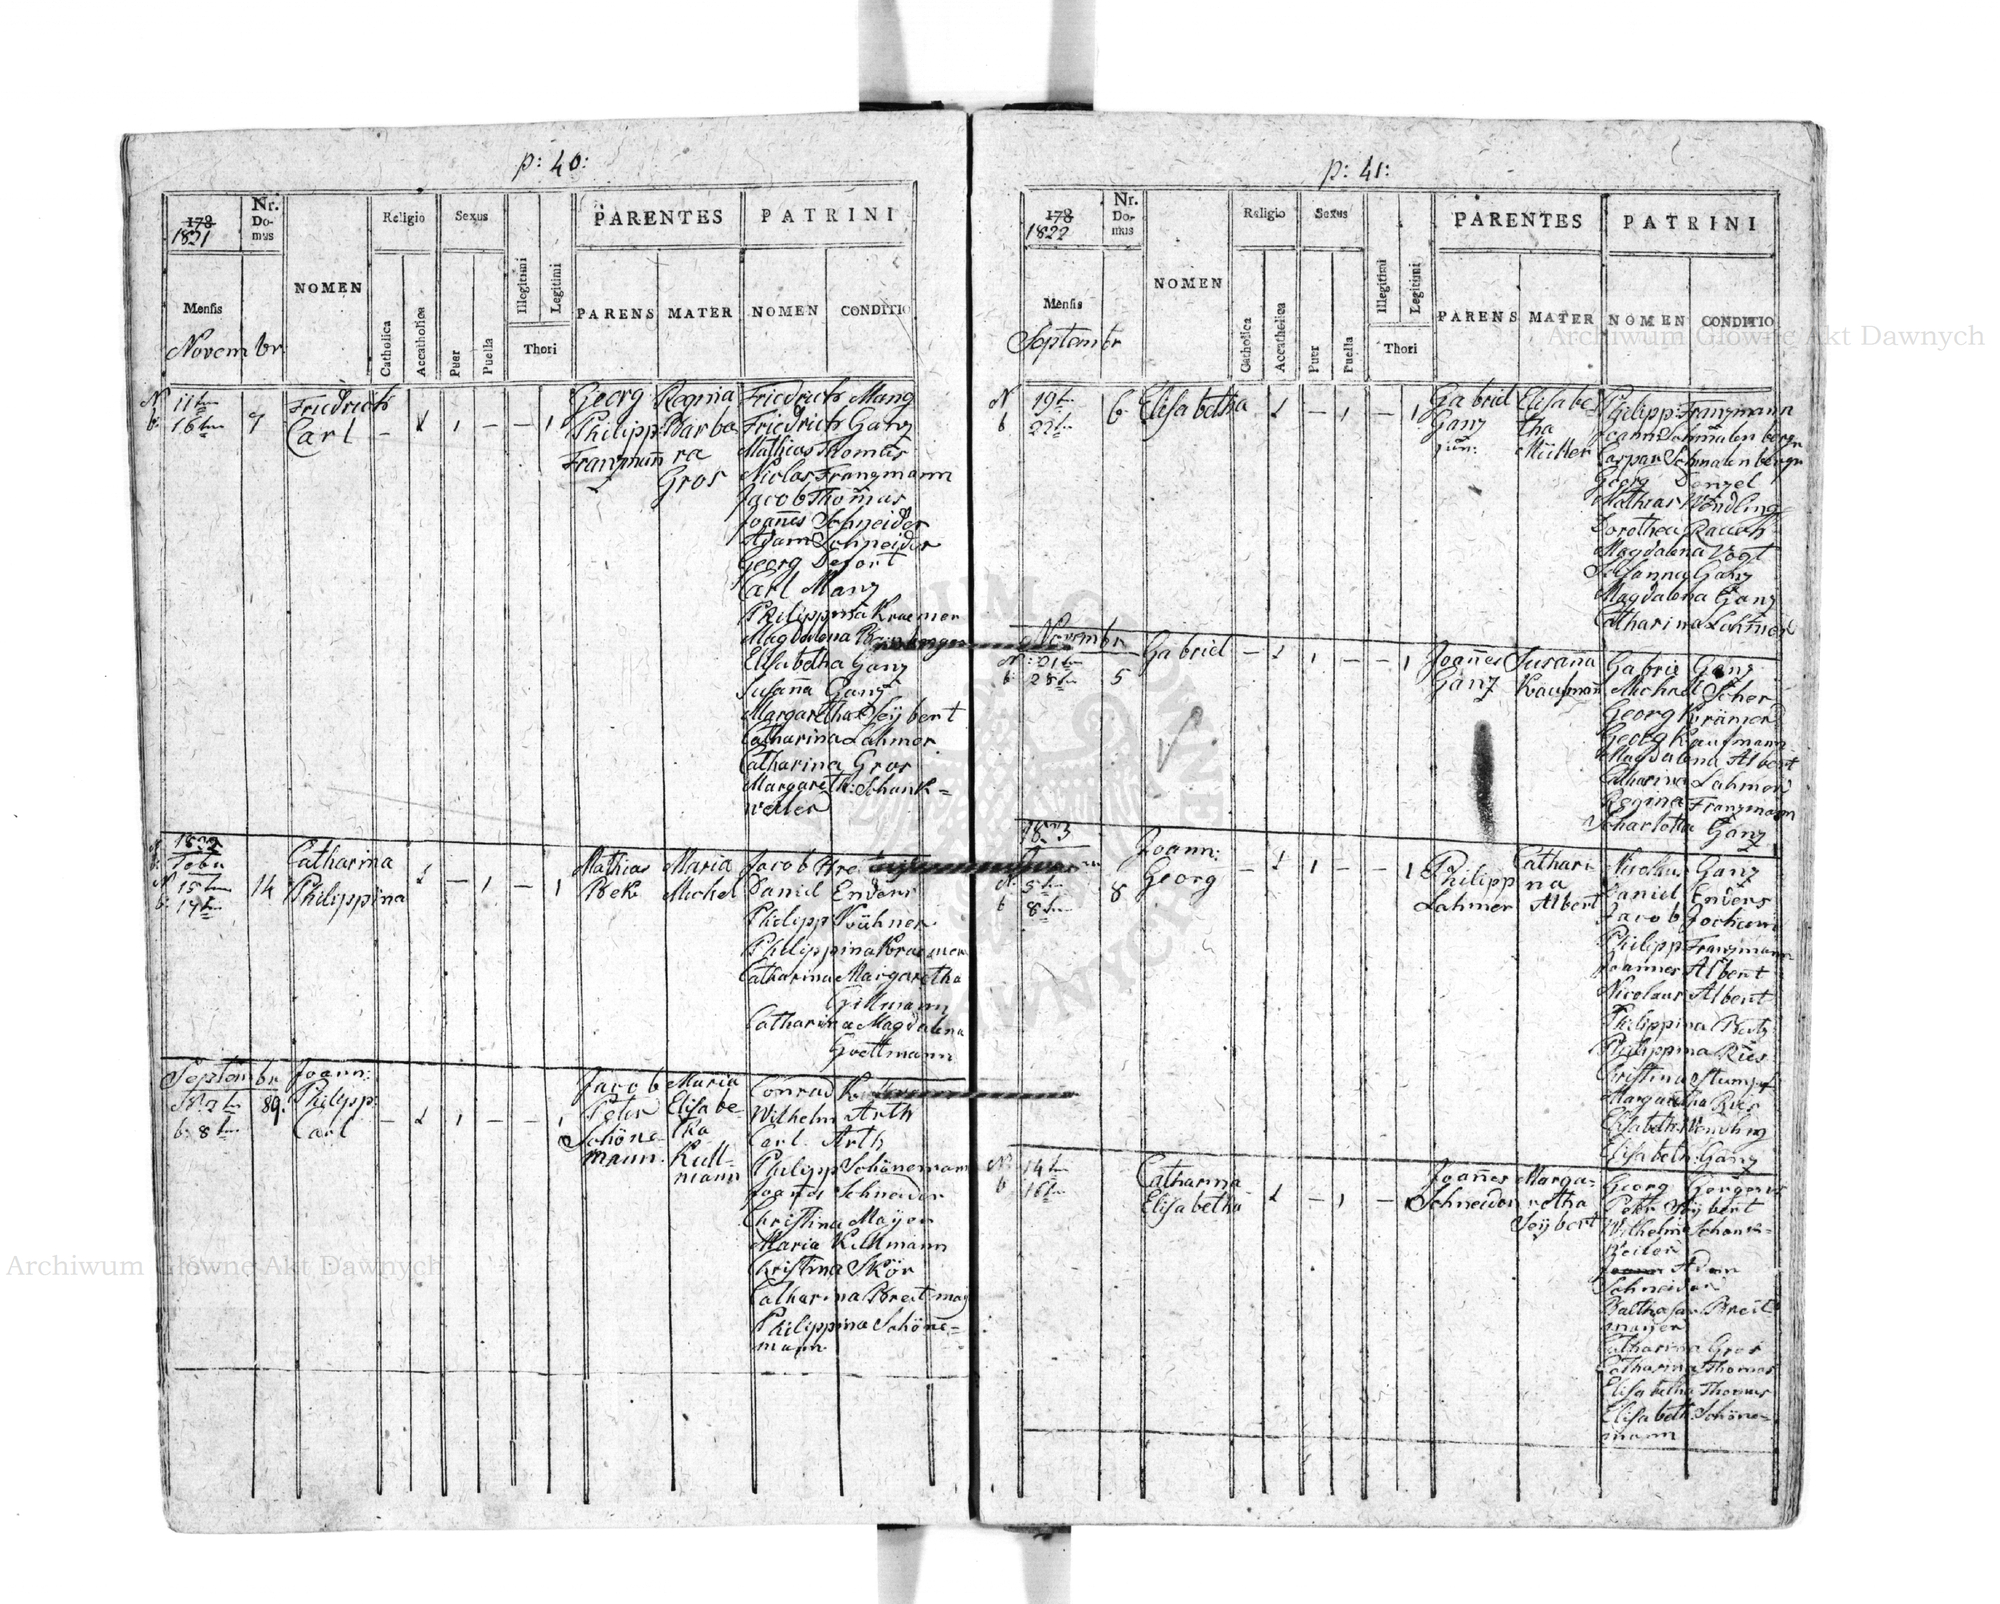 p: 40:
178
1821
Nr.
Do-
mus
NOMEN
Religio
Sexus
PARENTES
PATRINI
Mensis
Catholica
Accatholica
Puer
Puella
Illegitimi
Legitimi
Thori
PARENS
MATER
NOMEN
CONDITIO
Novembr
N 11
b 16
7
Friedrich
Carl
Georg
Philipp
Franzmann
Regina
Barba
ra
Gros
Friedrich Manz
Friedrich Ganz
Mathias Thomas
Niclas Franzmann
Jacob Thomas
Joannes Schneider
Adam Schneider
Georg Defort
Carl Manz
Philippina Kraemer
Magdalena
Elisabetha Ganz
Susanna Ganz
Margaretha Seÿbert
Catharina Lahmer
Catharina Gros
Margareth: Schank=
weiler
1822
N 15
b 17
14
Catharina
Philippina
Mathias
Bek
Maria
Michel
Jacob
Daniel Enders
Philipp Kühner
Philippina Kraemer
Catharina Margaretha
Gillmann
Catharina Magdalena
Goettmann
Septembr
b: 8
89.
Joann:
Philipp
Carl
Jacob
Peter
Schöne-
mann
Maria
Elisabe-
tha
Kull-
mann
Conrad
Wilhelm Arth
Carl Arth
Philipp Schönemann
Joannes Schneider
Christina Mayer
Maria Kullmann
Christina Skör
Catharina Breitmay
Philippina Schöne=
mann
p: 41:
178
1822
Nr.
Do-
mus
NOMEN
Religio
Sexus
PARENTES
PATRINI
Mensis
Catholica
Accatholica
Puer
Puella
Illegitimi
Legitimi
Thori
PARENS
MATER
NOMEN
CONDITIO
Septembr
N 19
b 22
6
Elisabetha
Gabriel
Ganz
jun:
Elisabe
tha
Müller
Philipp Franzmann
Joann Schmalenberger
Caspar Schmalenberger
Georg Denzel
Mathias Wendling
Dorothea Rauch
Magdalena Vogt
Susanna Ganz
Magdalena Ganz
Catharina Lahmer
Novembr
N: 21
b: 28
5
Gabriel
Joannes
Ganz
Susanna
Kaufmann
Gabriel Ganz
Michael Scher
Georg Krämer
Georg Kaufmann
Magdalena Albert
Catharina Lahmer
Regina Franzmann
Scharlotta Ganz
1823
N. 5
b 8
8
Joann:
Georg
Philipp
Lahmer
Cathari
na
Albert
Nicolaus Ganz
Daniel Enders
Jacob Jochum
Philipp Franzmann
Joannes Albert
Nicolaus Albert
Philippina Butz
Philippina Ries
Christina Stumpf
Margaretha Ries
Elisabeth Wendling
Elisabeth: Ganz
N: 14
b 16
Catharina
Elisabetha
Joannes
Schneider
Marga-
retha
Seÿbert
Georg Gorgeus
Peter Seÿbert
Wilhelm Schank-
weiler
Adam
Schneider
Balthasar Breit
mayer
Catharina Gros
Catharina Thomas
Elisabetha Thomas
Elisabeth Schöne=
mann
Archiwum Główne Akt Dawnych
Archiwum Główne Akt Dawnych